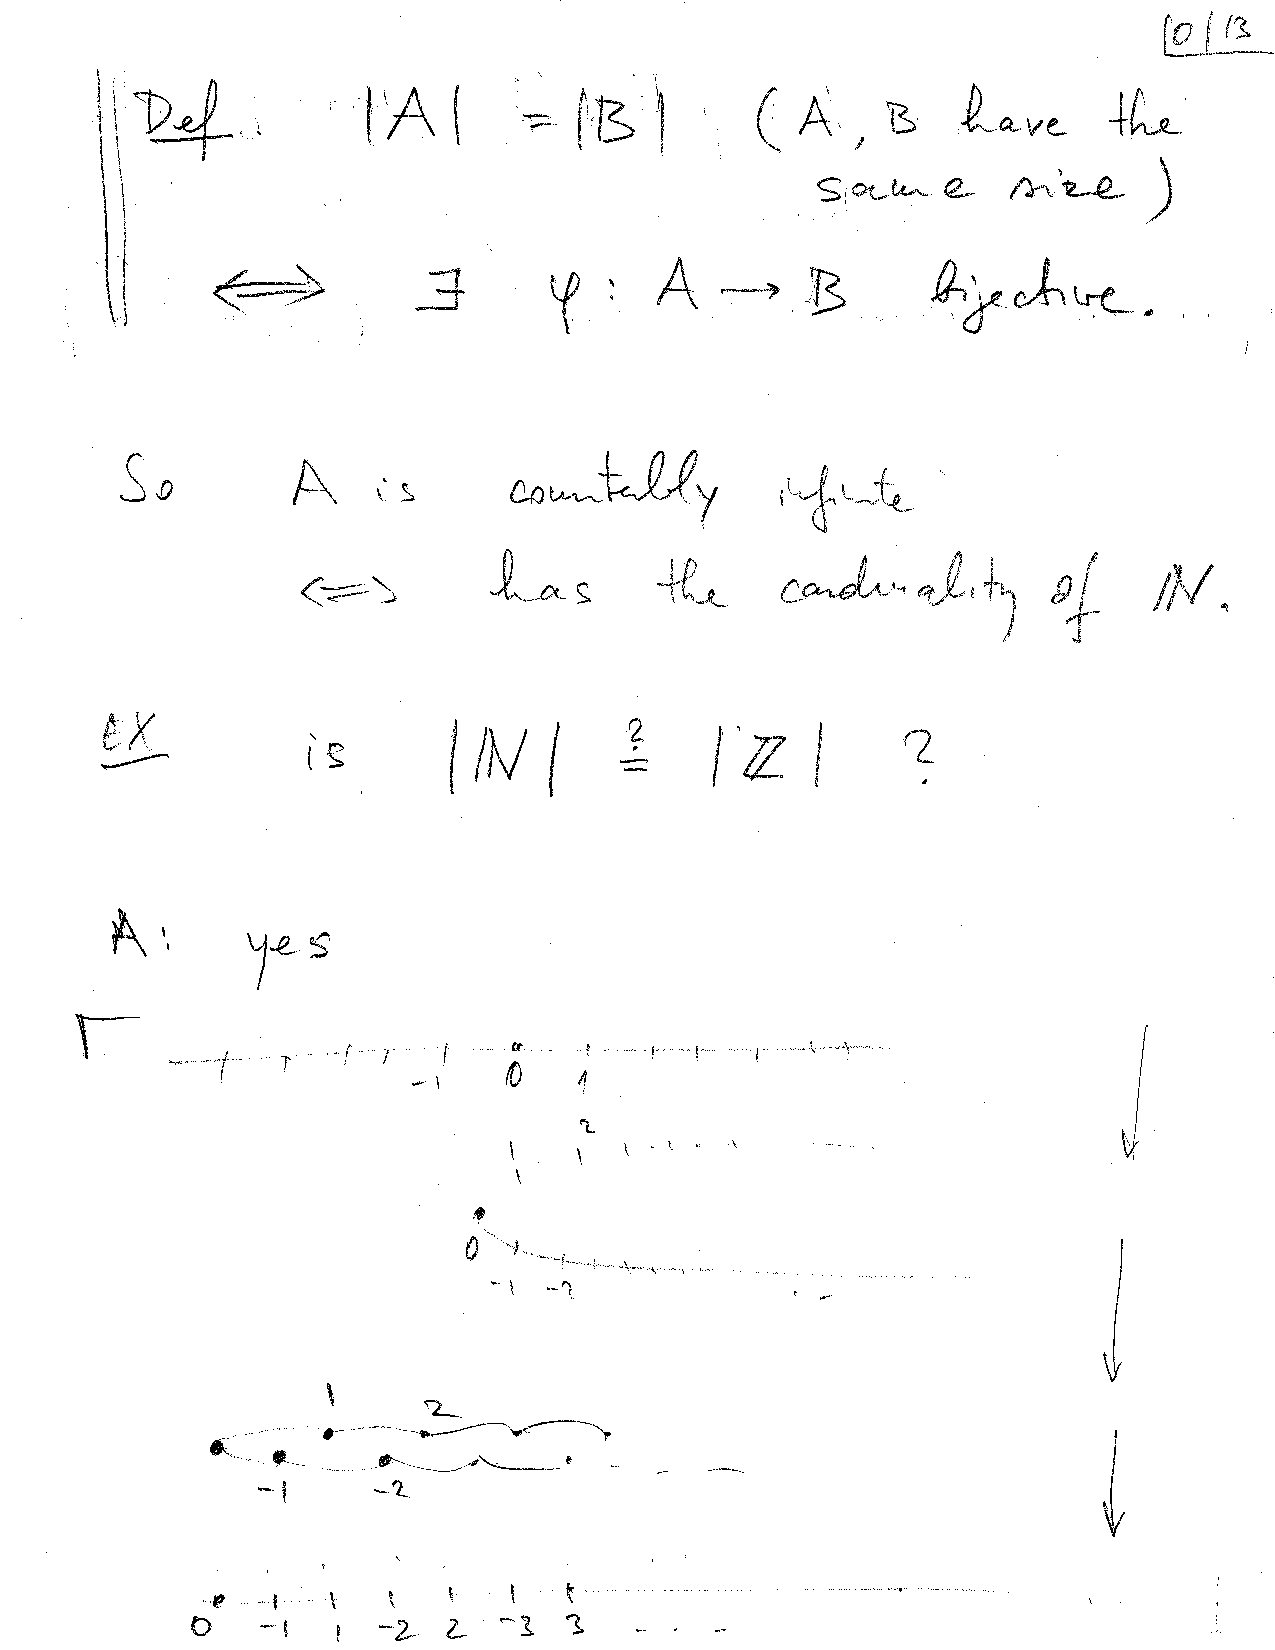 10/13
Def. |A| = |B| (A, B have the
same size)
⟺ ∃ φ: A → B bijective.
So A is countably infinite
⟺ has the cardinality of ℕ.
ex is |ℕ| ≟ |ℤ| ?
A: yes
-1 0 1
1 2
0 -1 -2
1 2
-1 -2
0 -1 1 -2 2 -3 3 - - -